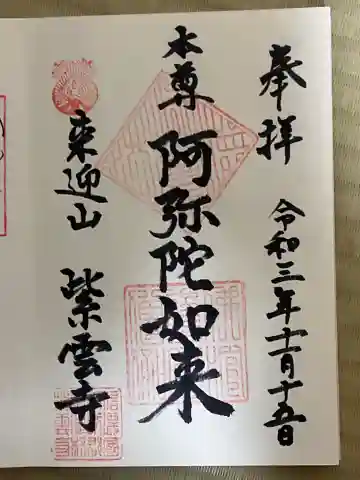 奉拝
令和三年十一月十五日
本尊
阿弥陀如来
来迎山
紫雲寺